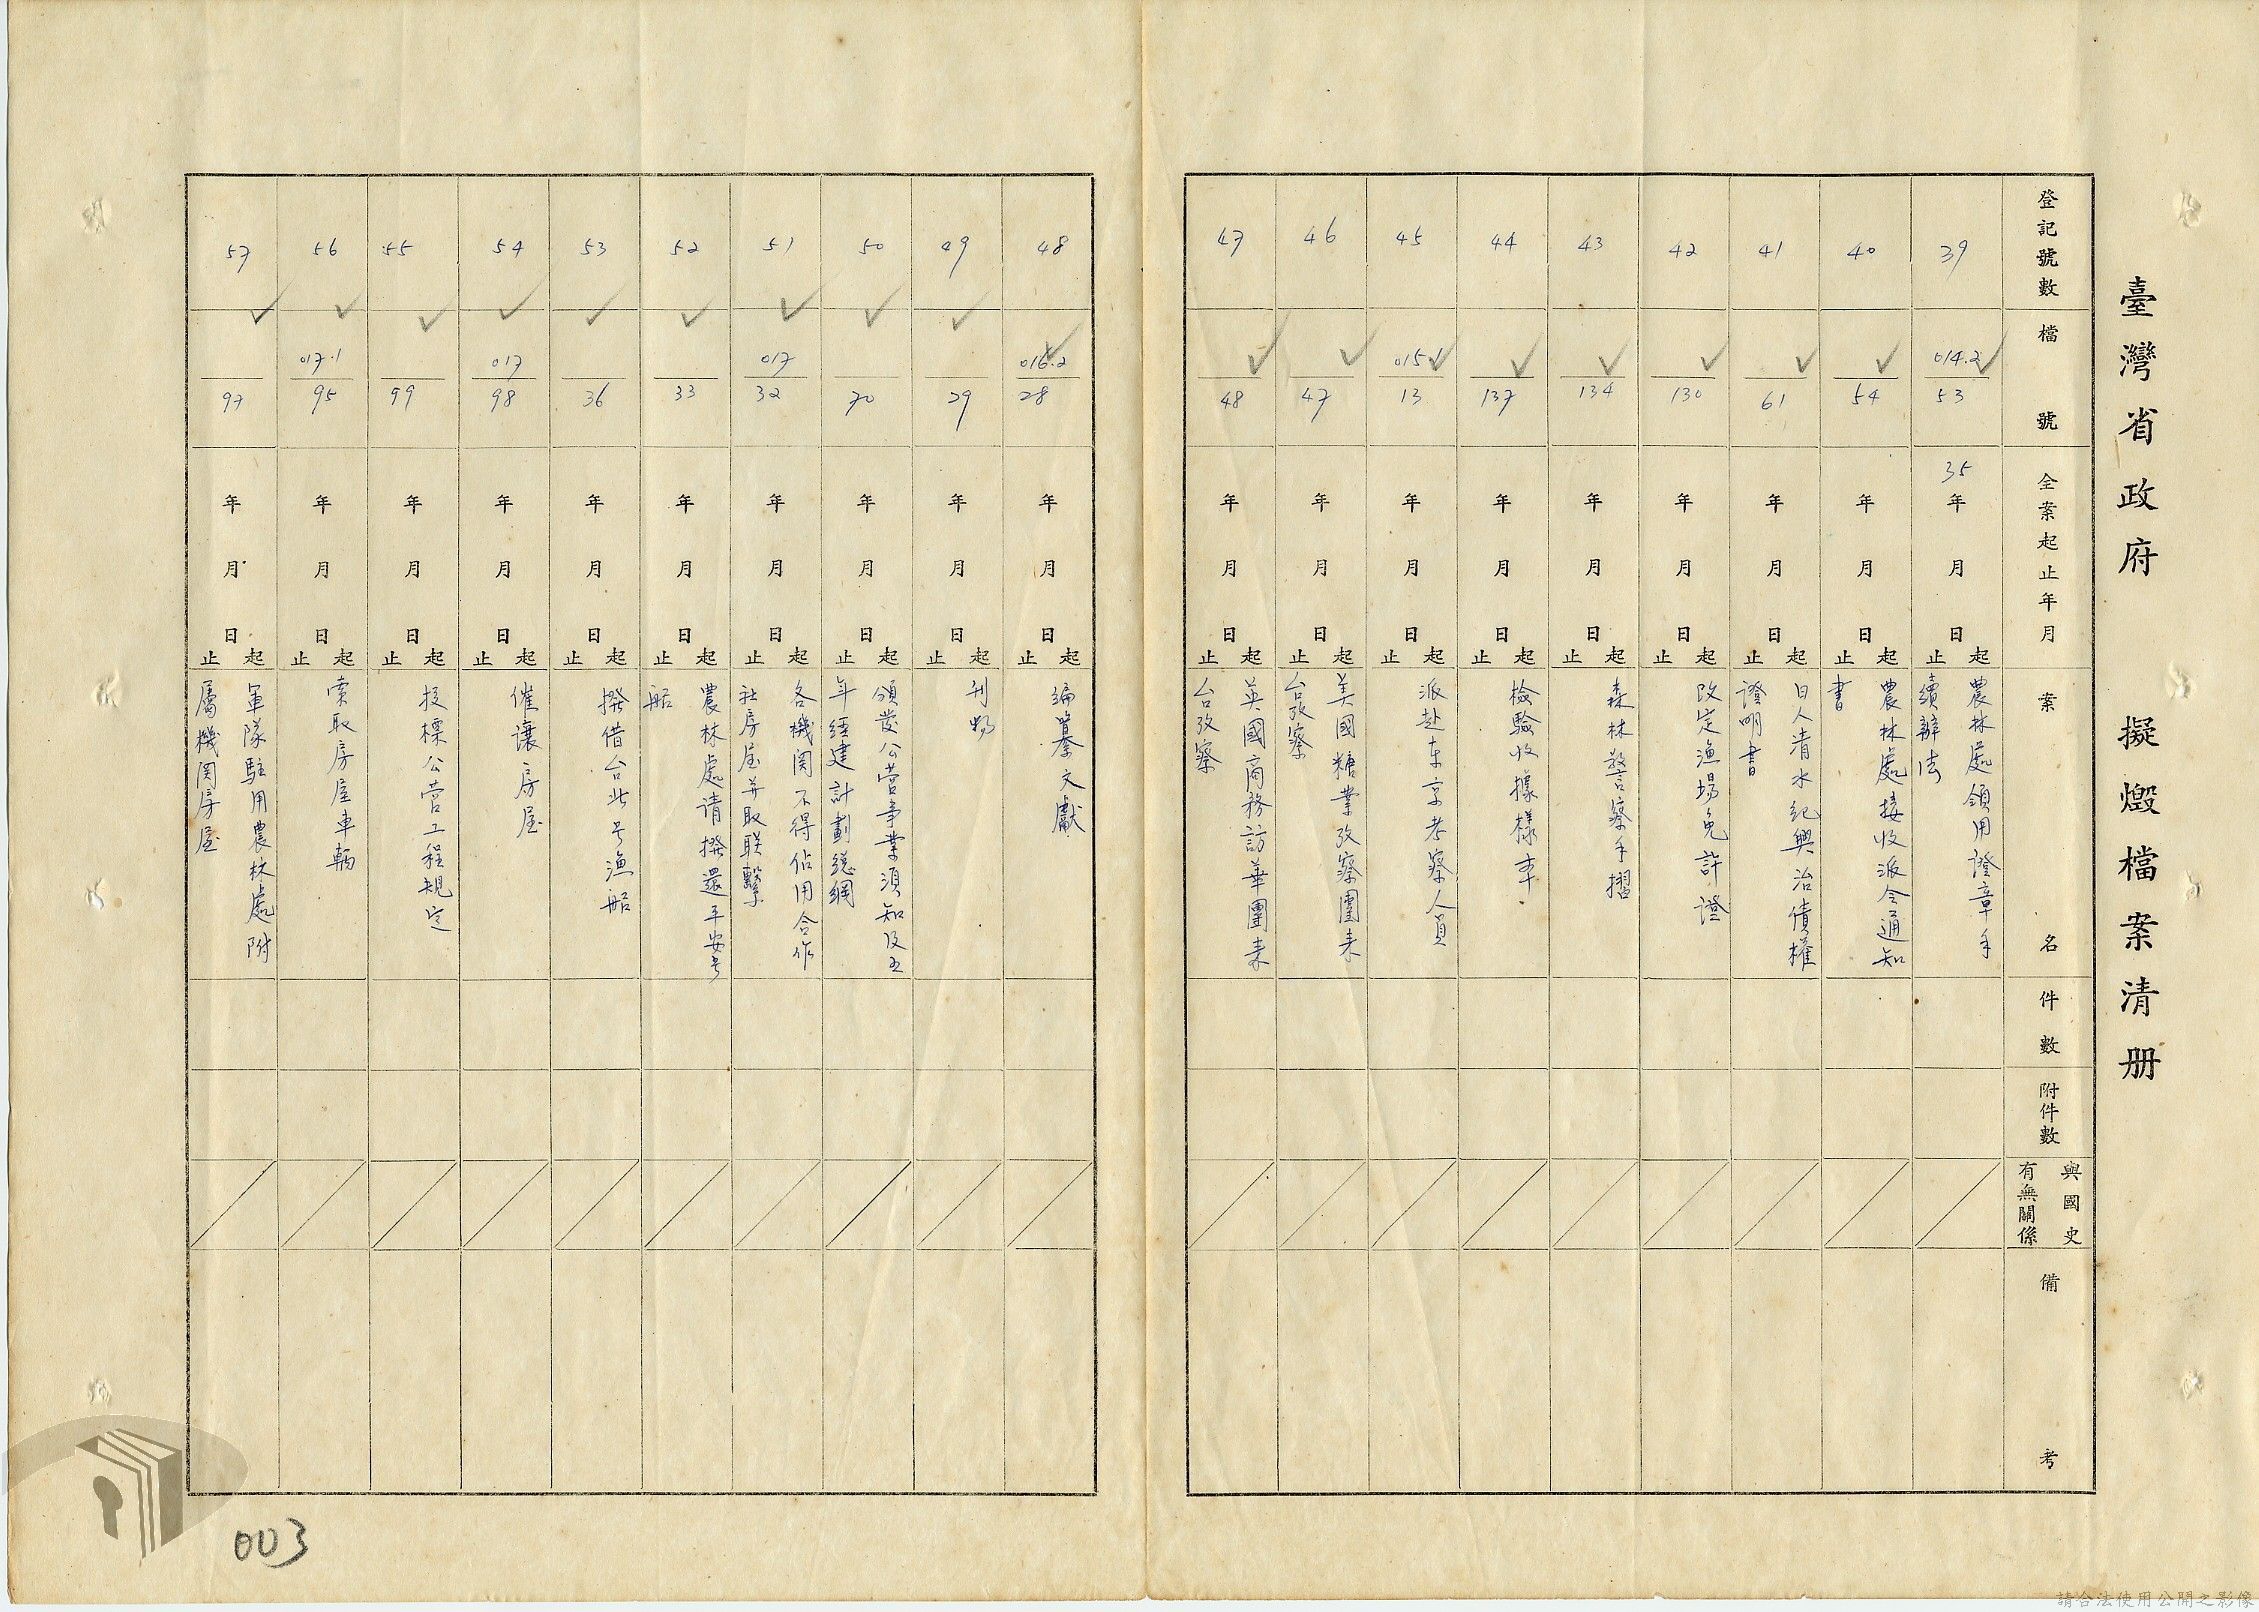 臺灣省政府 擬燬檔案清册
登記號數
檔號
全案起止年月
案名
件數
附件數
與國史
有無關係
備考
39
014.2
53
35年月日起止
農林處領用證章手
續辦法
40
54
年月日起止
農林處接收派令通知
書
41
61
年月日起止
日人清水紀與治債權
證明書
42
130
年月日起止
改定漁場免許證
43
134
年月日起止
森林警察手摺
44
137
年月日起止
檢驗收據樣本
45
015.1
13
年月日起止
派赴东京考察人員
46
47
年月日起止
美國糖業攷察團来
台攷察
47
48
年月日起止
英國商務訪華團来
台攷察
48
016.2
28
年月日起止
編纂文獻
49
29
年月日起止
刊物
50
70
年月日起止
頒發公营事業須知及五
年經建計劃總綱
51
017
32
年月日起止
各機関不得佔用合作
社房屋并取联繫
52
33
年月日起止
農林處请撥還平安号
船
53
36
年月日起止
撥借台北号漁船
54
017
98
年月日起止
催讓房屋
55
99
年月日起止
投標公营工程規定
56
017.1
95
年月日起止
索取房屋車輛
57
97
年月日起止
軍隊駐用農林處附
屬機関房屋
003
請合法使用公開之影像